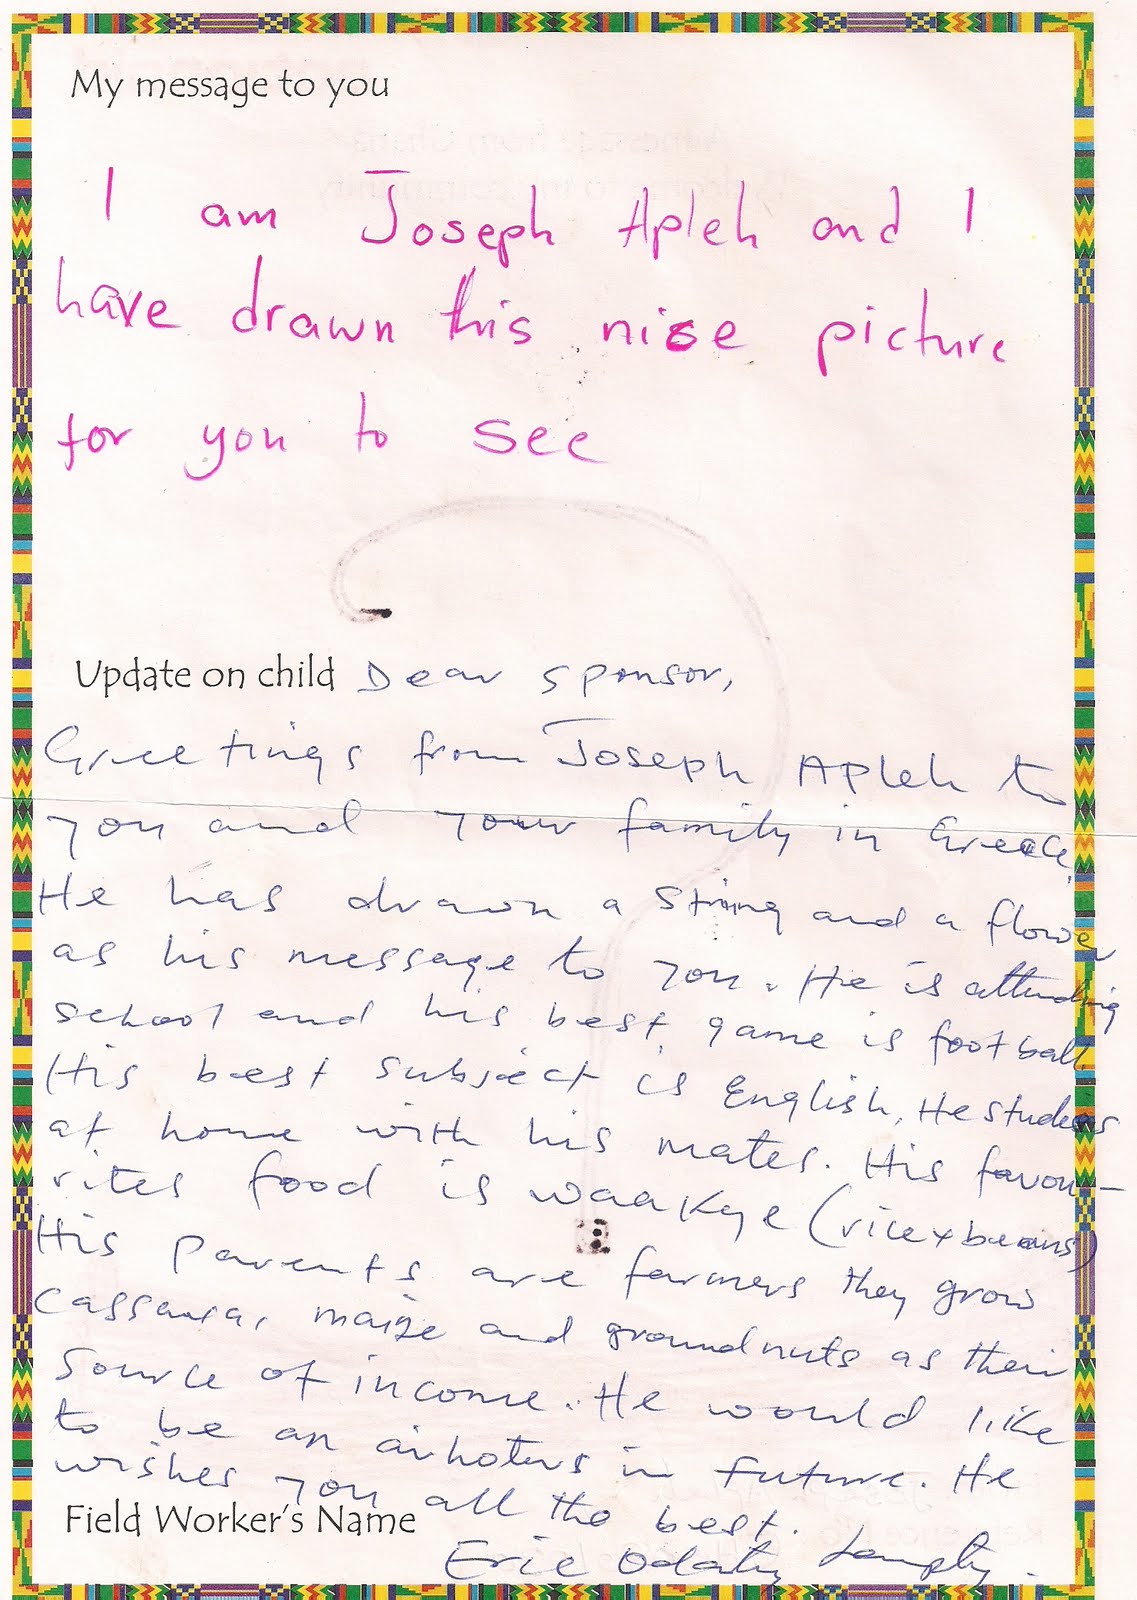 My message to you
I am Joseph Apleh and I
have drawn this nice picture
for you to see
Update on child Dear sponsor,
Greetings from Joseph Apleh to
you and your family in Greece.
He has drawn a string and a flower
as his message to you. He is attending
school and his best game is football.
His best subject is English, He studies
at home with his mates. His favou-
rites food is waakye (rice + beans)
His parents are farmers they grow
cassava, maize and groundnuts as their
source of income. He would like
to be an in future. He
wishes you all the best.
Field Worker's Name
Eric